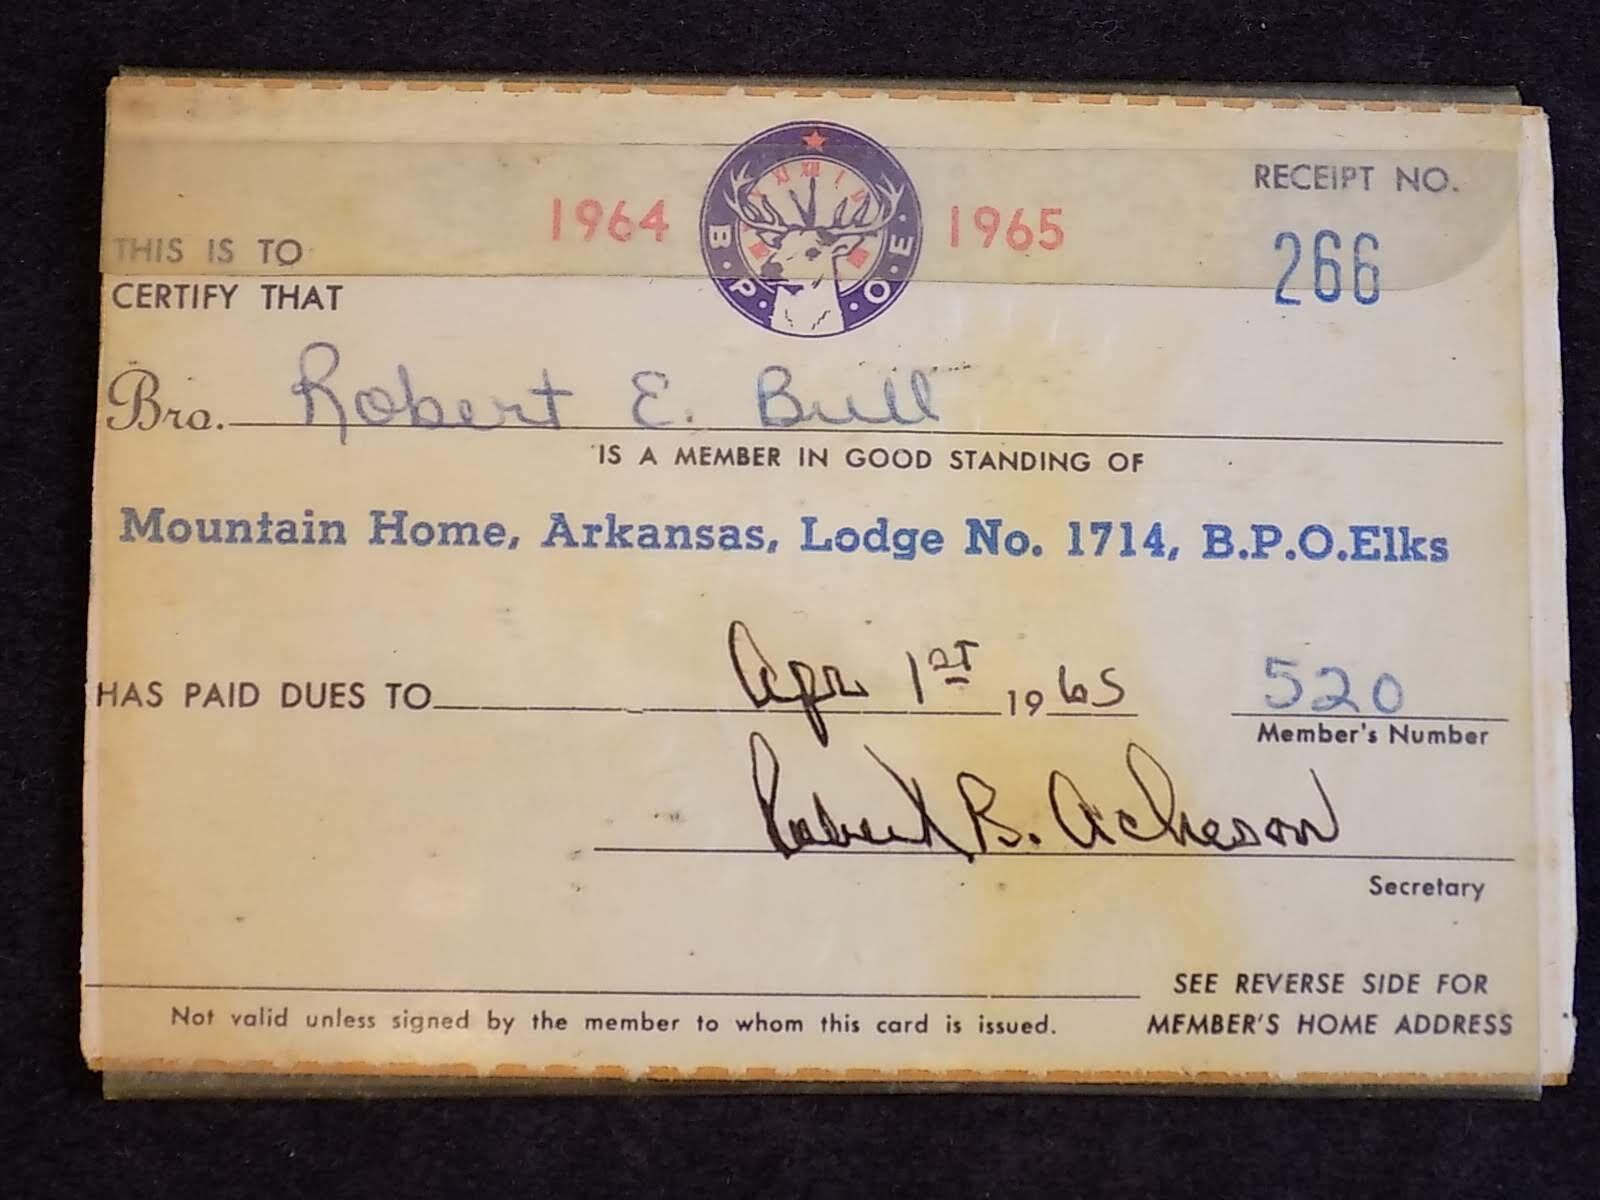 1964 B·P·O·E· 1965
RECEIPT NO.
266
THIS IS TO
CERTIFY THAT
Bro. Robert E. Bull
IS A MEMBER IN GOOD STANDING OF
Mountain Home, Arkansas, Lodge No. 1714, B.P.O.Elks
HAS PAID DUES TO Apr 1ST 1965 520
Member's Number
Robert B. Acheson
Secretary
SEE REVERSE SIDE FOR
MEMBER'S HOME ADDRESS
Not valid unless signed by the member to whom this card is issued.